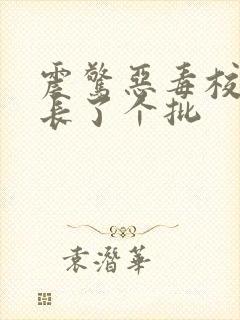 震惊恶毒校
长了个批
袁潛華